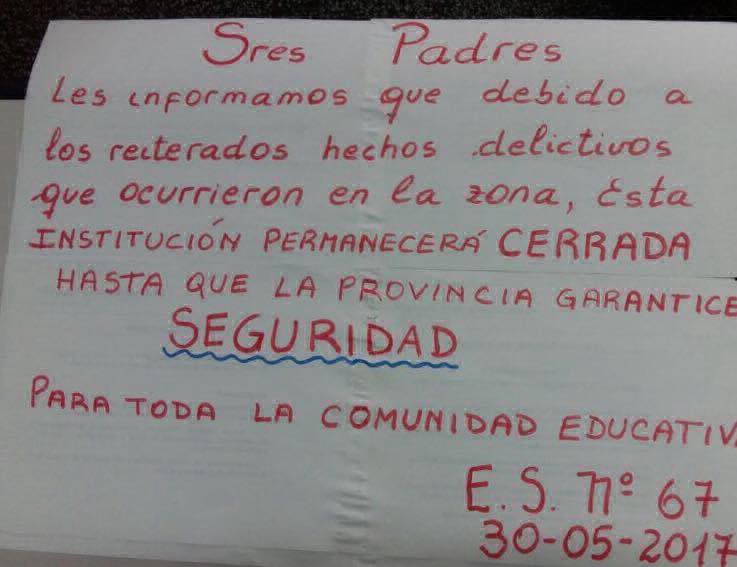 Sres Padres
Les informamos que debido a
los reiterados hechos delictivos
que ocurrieron en la zona, Esta
INSTITUCIÓN PERMANECERÁ CERRADA
HASTA QUE LA PROVINCIA GARANTICE
SEGURIDAD
PARA TODA LA COMUNIDAD EDUCATIVA
E.S. Nº 67
30-05-2017